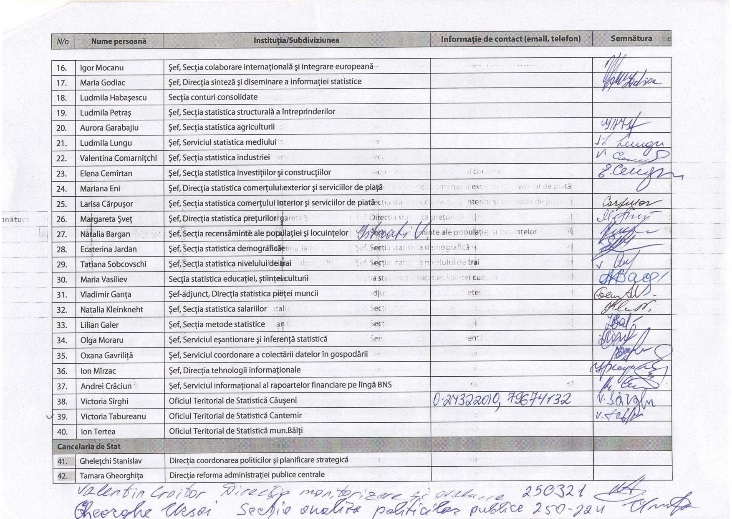 N/o Nume persoană Instituția/Subdiviziunea Informație de contact (email, telefon) Semnătura
16. Igor Mocanu Șef, Secția colaborare internațională și integrare europeană
17. Maria Godiac Șef, Direcția sinteză și diseminare a informației statistice
18. Ludmila Habașescu Secția conturi consolidate
19. Ludmila Petraș Șef, Secția statistica structurală a întreprinderilor
20. Aurora Garabajiu Șef, Secția statistica agriculturii
21. Ludmila Lungu Șef, Serviciul statistica mediului Lungu
22. Valentina Comarnițchi Șef, Secția statistica industriei
23. Elena Cemîrtan Șef, Secția statistica investițiilor și construcțiilor
24. Mariana Eni Șef, Direcția statistica comerțului exterior și serviciilor de piață
25. Larisa Cărpușor Șef, Secția statistica comerțului interior și serviciilor de piață Carpusor
26. Margareta Șveț Șef, Direcția statistica prețurilor
27. Natalia Bargan Șef, Secția recensăminte ale populației și locuințelor
28. Ecaterina Jardan Șef, Secția statistica demografică
29. Tatiana Sobcovschi Șef, Secția statistica nivelului de trai
30. Maria Vasiliev Secția statistica educației, științei, culturii
31. Vladimir Ganța Șef-adjunct, Direcția statistica pieței muncii
32. Natalia Kleinkneht Șef, Secția statistica salariilor
33. Lilian Galer Șef, Secția metode statistice
34. Olga Moraru Șef, Serviciul eșantionare și inferență statistică
35. Oxana Gavriliță Șef, Serviciul coordonare a colectării datelor în gospodării
36. Ion Mîrzac Șef, Direcția tehnologii informaționale
37. Andrei Crăciun Șef, Serviciul informațional al rapoartelor financiare pe lîngă BNS
38. Victoria Sîrghi Oficiul Teritorial de Statistică Căușeni 0-24322010, 79674132
39. Victoria Tabureanu Oficiul Teritorial de Statistică Cantemir
40. Ion Tertea Oficiul Teritorial de Statistică mun.Bălți
Cancelaria de Stat
41. Ghelețchi Stanislav Direcția coordonarea politicilor și planificare strategică
42. Tamara Gheorghița Direcția reforma administrației publice centrale
Valentin Croitor Direcția monitorizare și evaluare 250321
Gheorghe Ursoi Secția analiza politicilor publice 250-224